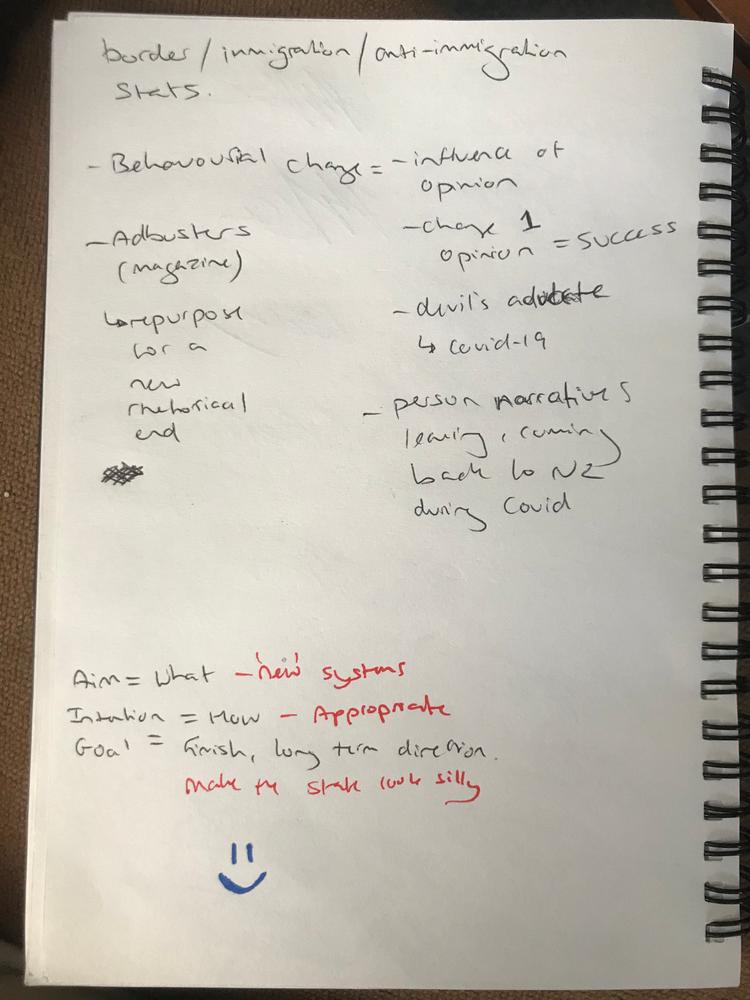 border / immigration / anti-immigration
stats.
- Behavourial change = - influence of
opinion
- change 1
opinion = success
- devil's advocate
↳ covid-19
- person narratives
leaving, coming
back to NZ
during Covid
- Adbusters
(magazine)
↳ repurpose
for a
new
rhetorical
end
Aim = What - 'new' systems
Intention = How - Appropriate
Goal = finish, long term direction.
make the state look silly